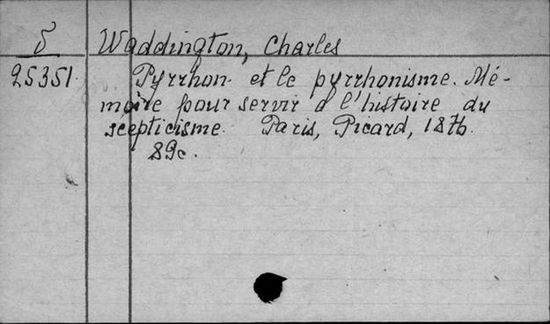 5 Waddington, Charles
25351. Pyrrhon et le pyrrhonisme. Mé-
moire pour servir à l'histoire du
scepticisme. Paris, Picard, 1876.
89c.